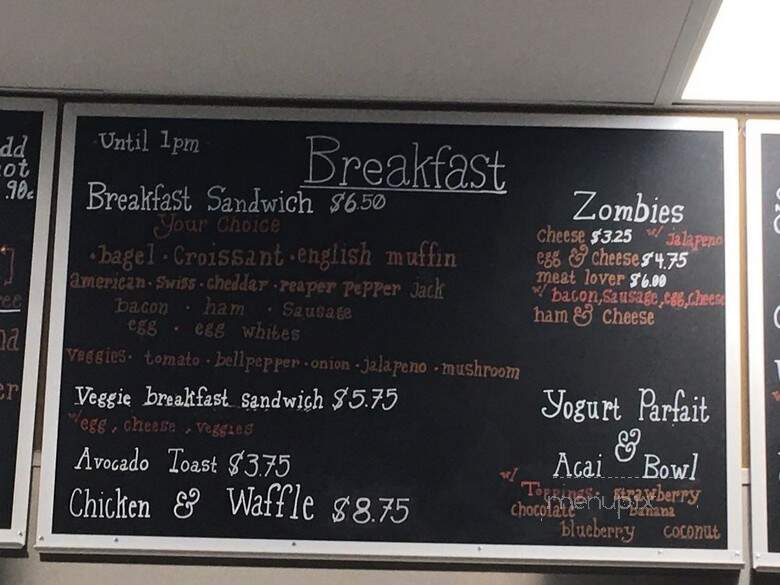 dd
ot
.90¢
Until 1pm
Breakfast
Breakfast Sandwich $6.50
Your Choice
• bagel • Croissant • english muffin
american • swiss • cheddar • reaper pepper jack
bacon • ham • Sausage
egg • egg whites
veggies • tomato • bellpepper • onion • jalapeno • mushroom
Veggie breakfast sandwich $5.75
w/ egg, cheese, veggies
Avocado Toast $3.75
Chicken & Waffle $8.75
Zombies
cheese $3.25 w/ jalapeno
egg & cheese $4.75
meat lover $6.00
w/ bacon, Sausage, egg, cheese
ham & cheese
Yogurt Parfait
&
Acai Bowl
w/ Toppings: strawberry
chocolate Banana
blueberry coconut
menupix